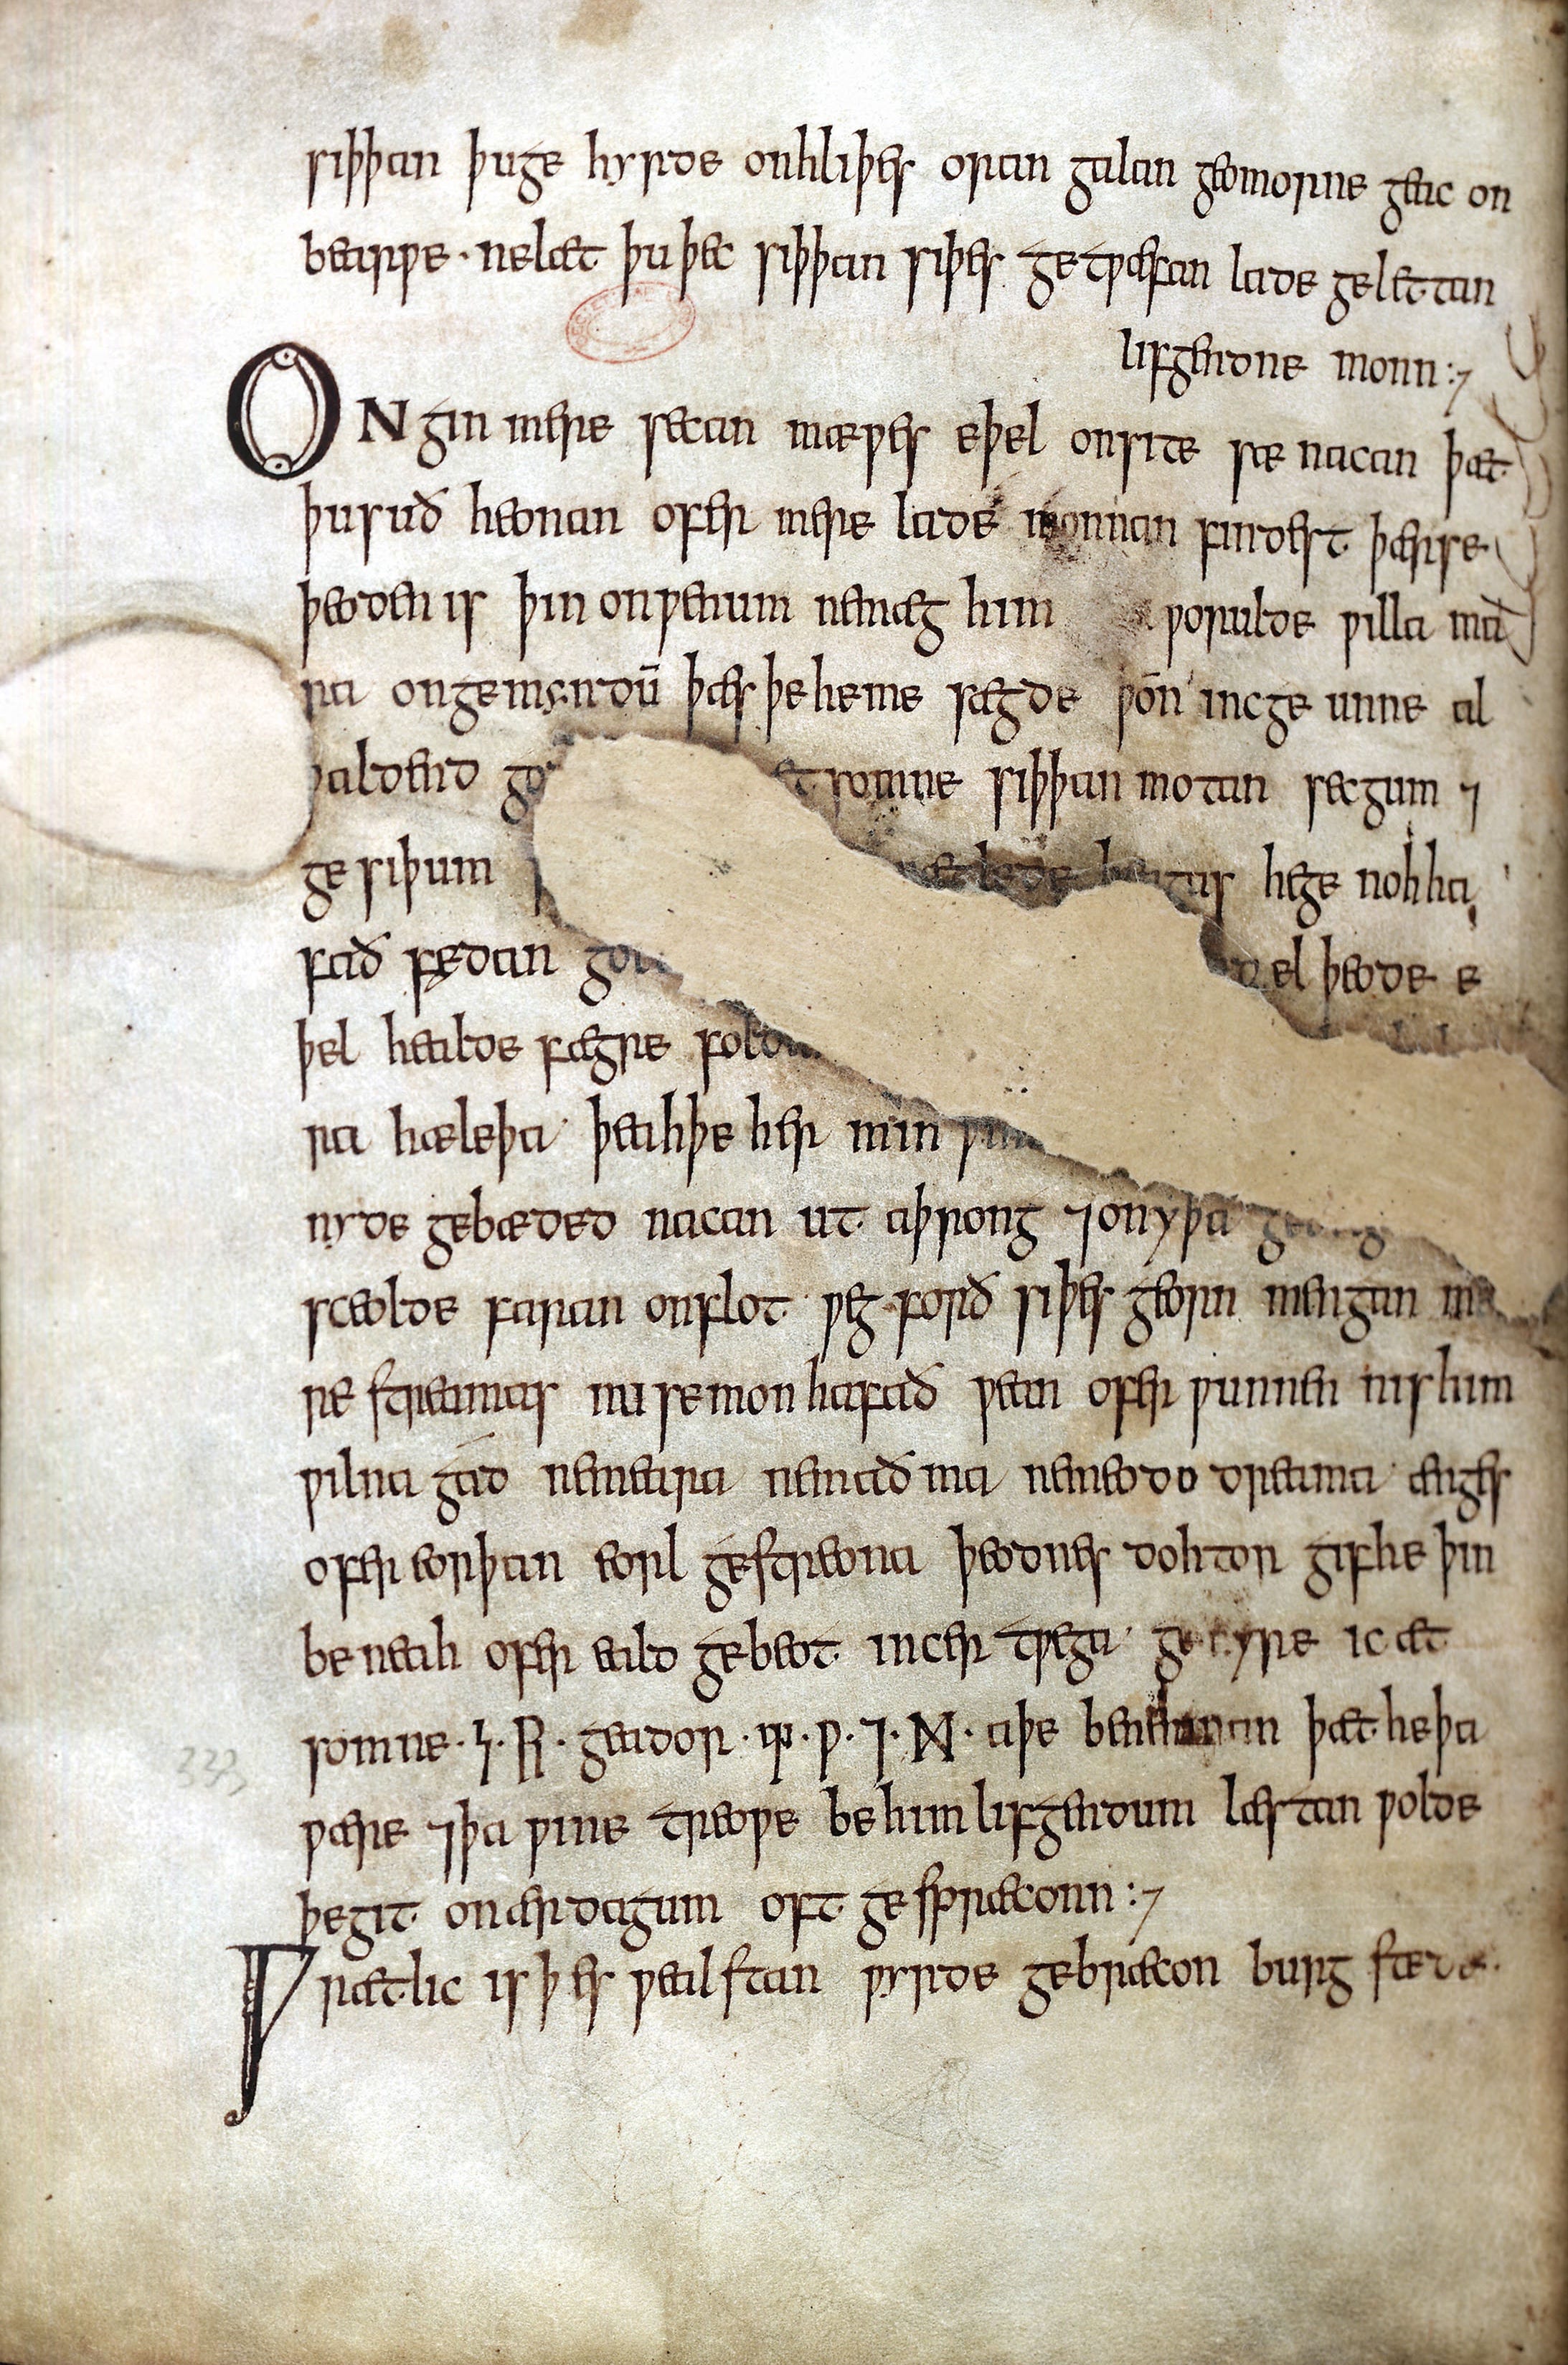 siþþan þuge hyrde onhliþes oran galan geomorne geac on
bearƿe · nelæt þu þec siþþan siþes getƿæfan lade gelettan
lifgendne monn :⁊
ONgin mere secan mæƿes eþel onsite sæ nacan þæt
þusuð heonan ofer mere lade monnan findest þærse
þeoden is þin onƿenum nemæg him ƿorulde ƿilla ma
ra ongemyndū þæs þe heme sægde þōn incge unne al
ƿaldend ætsomne siþþan motan secgum ⁊
ge siþum hege nohha
fað fedan el þeode e
þel healde fægre
ra hæleþa þeahþe her min
nyde gebæded nacan ut aþrong ⁊onyþa
sceolde faran onflot ƿeg forð siþes georn mengan
re streamas nu semon hafað ƿean ofer ƿunnen nis him
ƿilna gad nemeara nemaðma nemeodo dreama ænges
ofer eorþan eorl gestreona þeodnes dohtor gifhe þin
beneah ofer eald gebeot incer tƿega ge yre ic æt
somne · ᛋ · ᚱ · geador · ᛠ · ᚹ · ⁊ · ᛗ · aþe benemnan þæt heþa
ƿære ⁊þa ƿine treoƿe behim lifgendum læstan ƿolde
þegit onærdagum oft gespræconn :⁊
Ƿrætlic is þes ƿealstan ƿyrde gebræcon burg stede